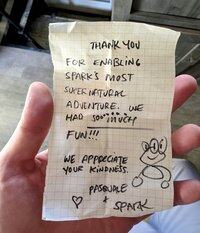 THANK YOU
FOR ENABLING
SPARK'S MOST
SUPERNATURAL
ADVENTURE. WE
HAD SOOO MUCH
FUN!!!
WE APPRECIATE
YOUR KINDNESS.
PASQUALE
+ SPARK